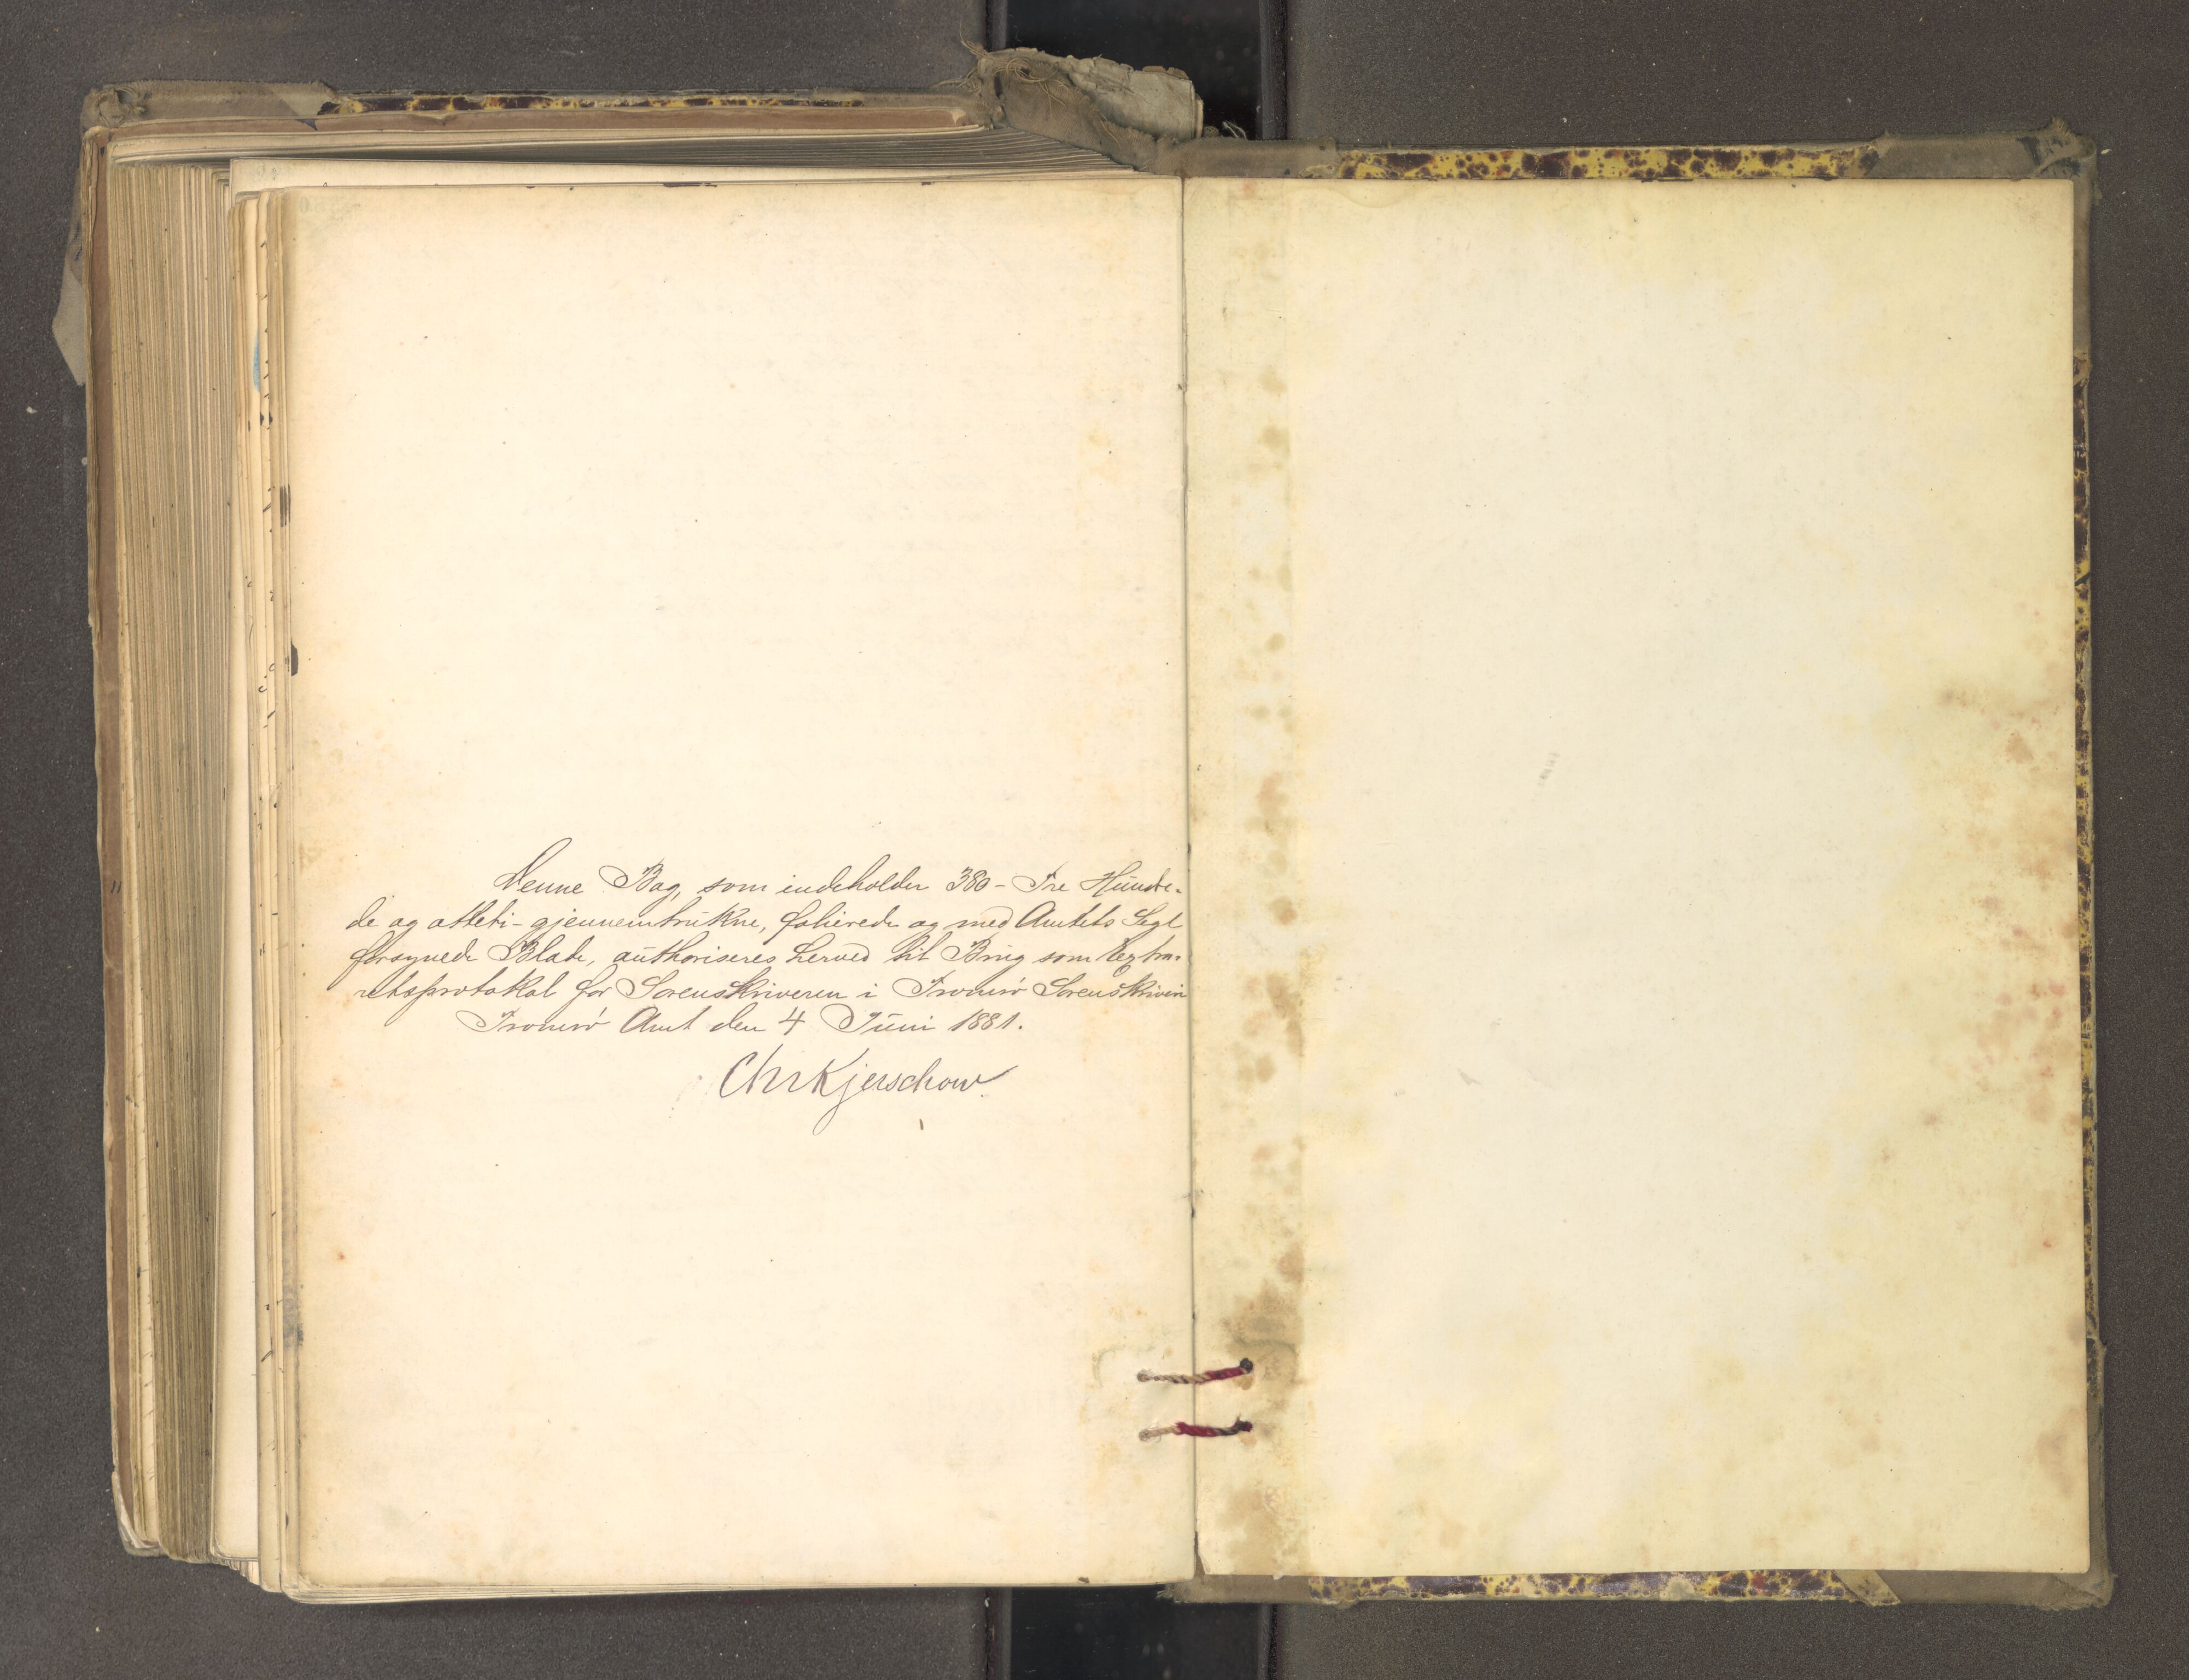 Denne Bog, som indeholder 380 - Tre Hundre-
de og otteti - gjennemtrukne, folierede og med Amtets Segl
forsynede Blade, authoriseres herved til Brug som Extra-
retsprotokol for Sorenskriveren i Tromsø Sorenskriveri
Tromsø Amt den 4 Juni 1881.
Chr Kjerschow.